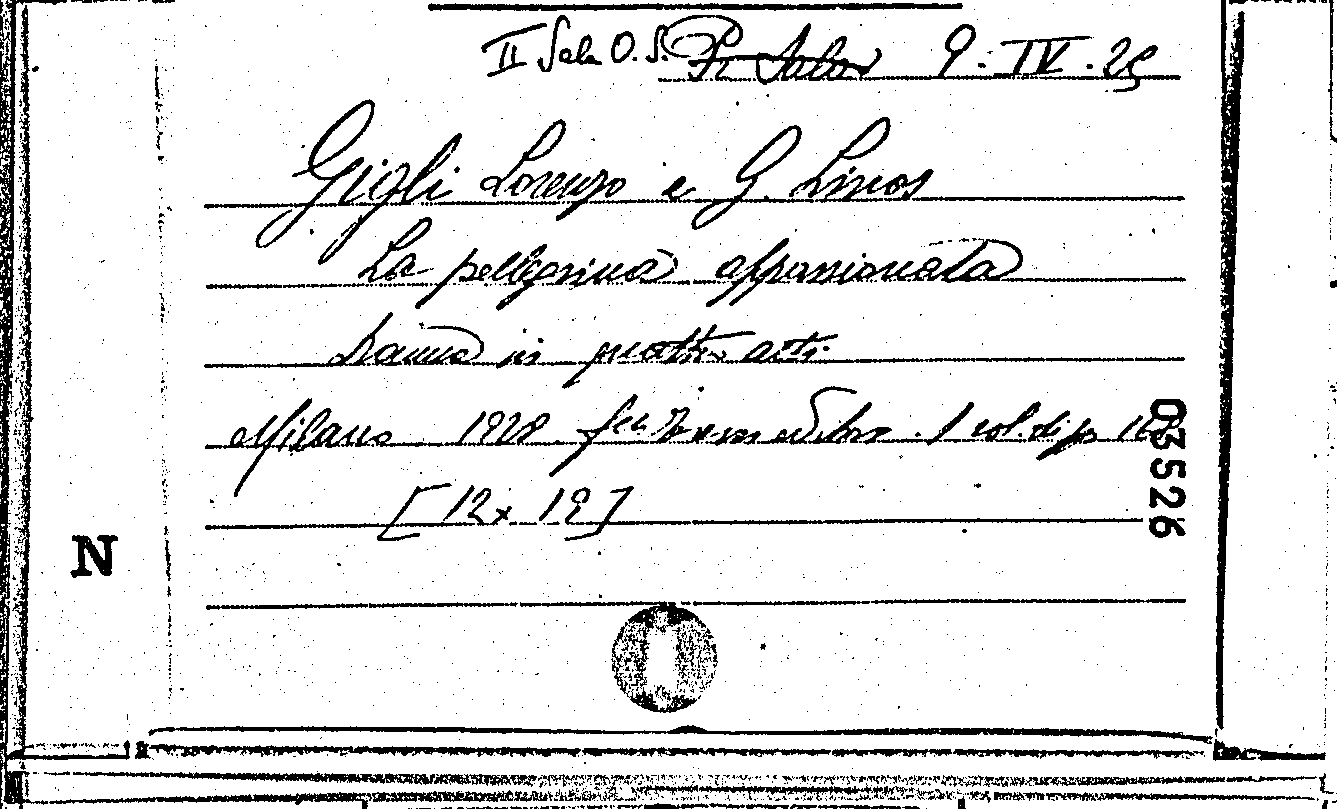 II Sala O.S. Pr Sala 9. IV. 25
Gigli Lorenzo e G. Linos
La pellegrina appassionata
Dramma in quattro atti
Milano 1928 editr. 1 vol. di p.
[12 x 19]
03526
N